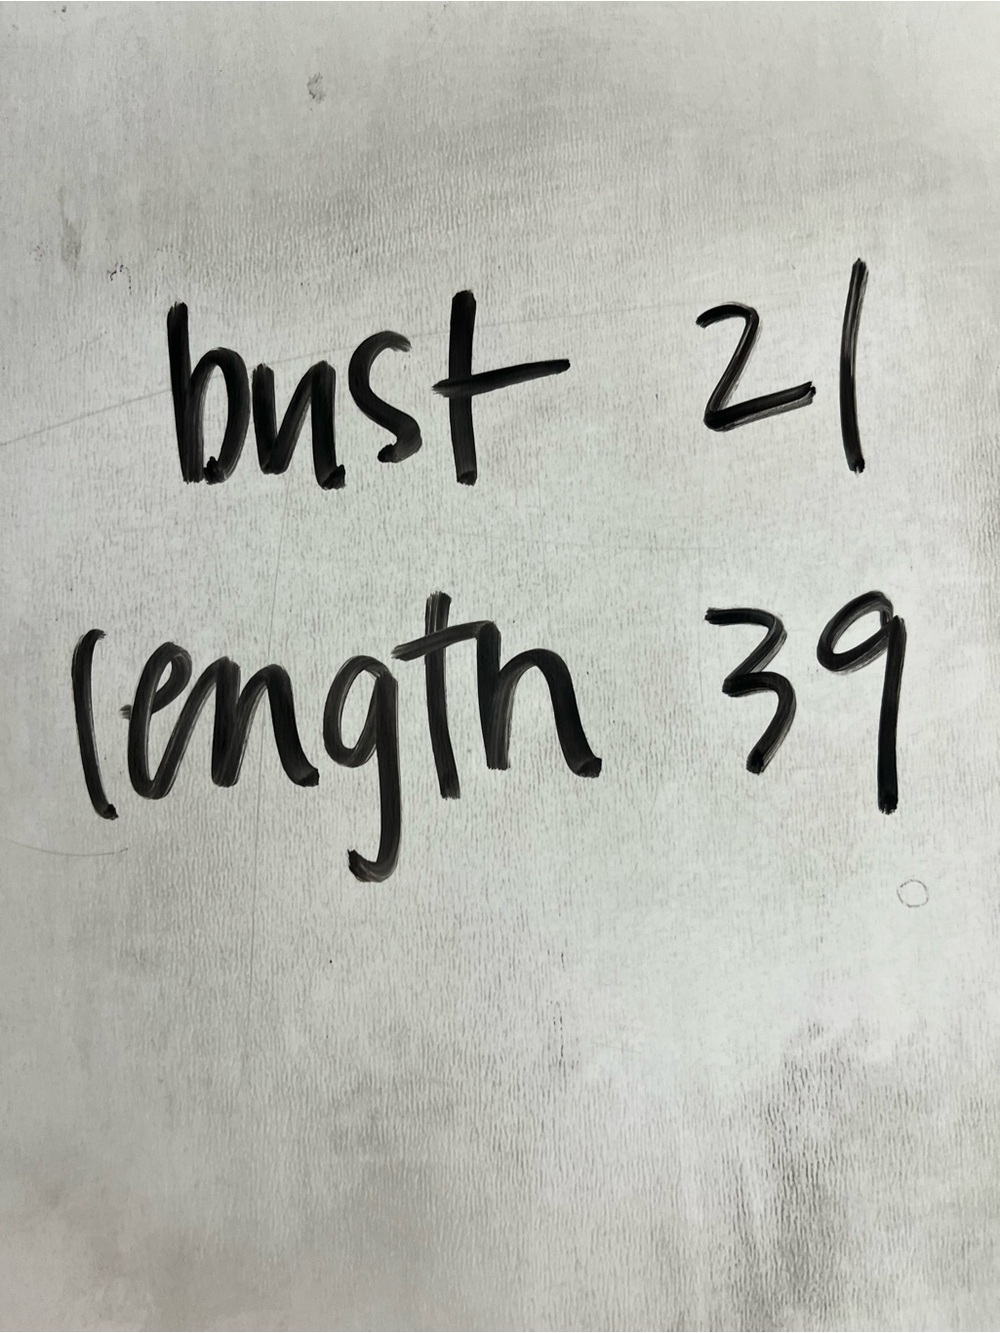 bust 21
length 39